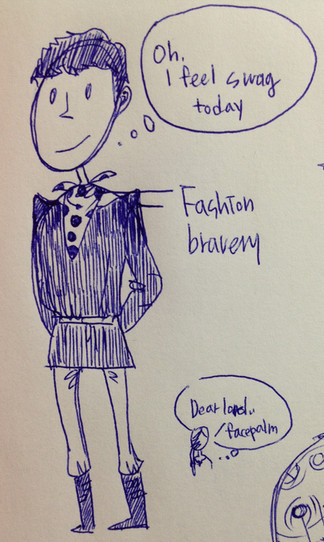 Oh,
I feel swag
today
Fashion
bravery
Dear lord..
facepalm